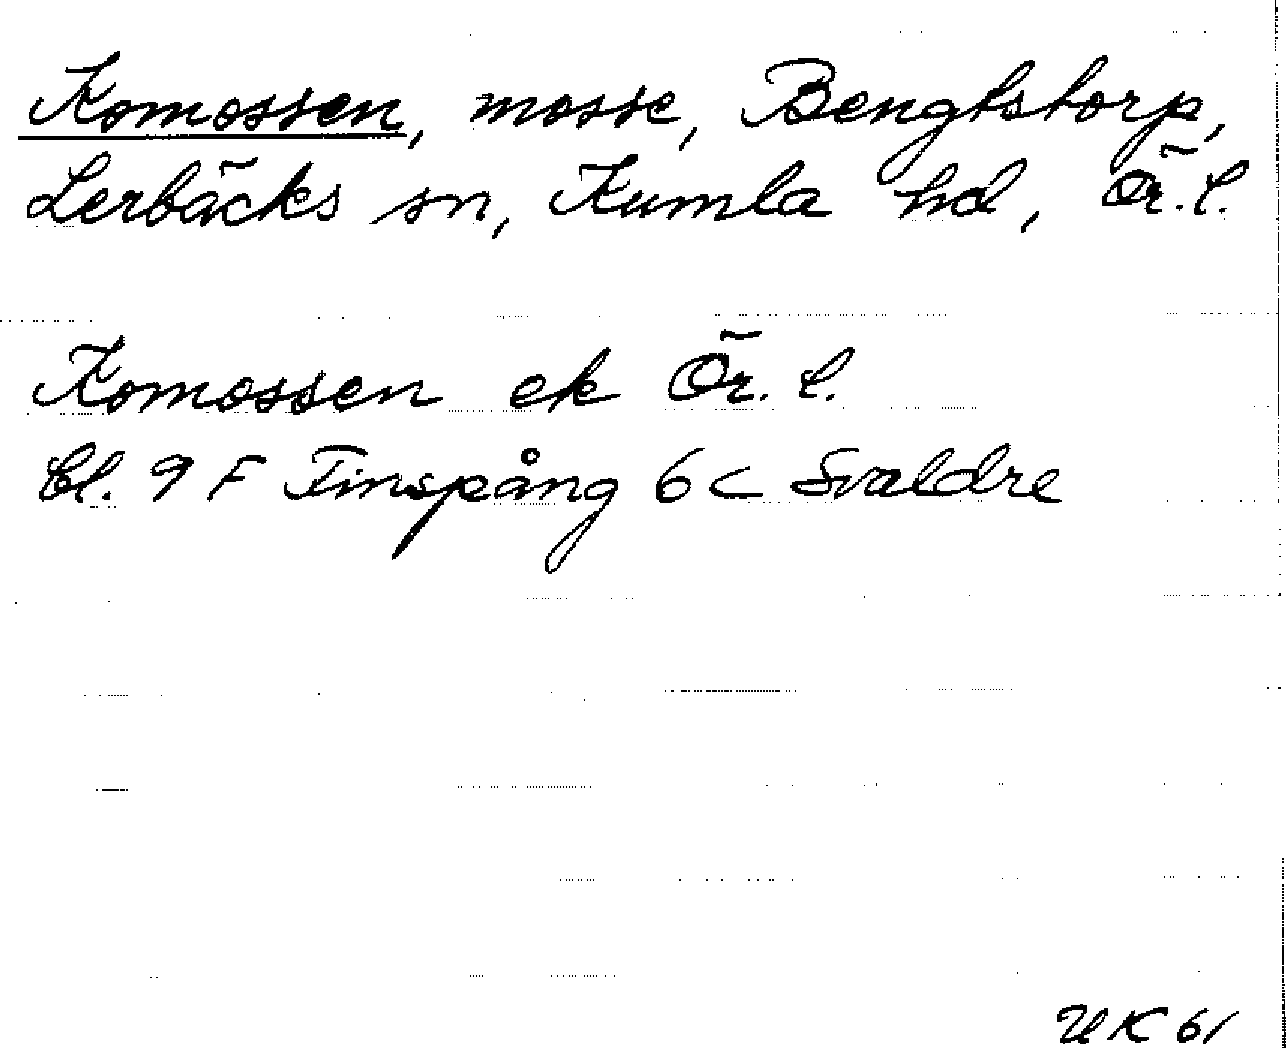 Komossen, mosse, Bengtstorp,
Lerbäcks sn, Kumla hd, Ör. l.
Komossen ek Ör. l.
Bl. 9 F Finspång 6 c Svaldre
UK 61